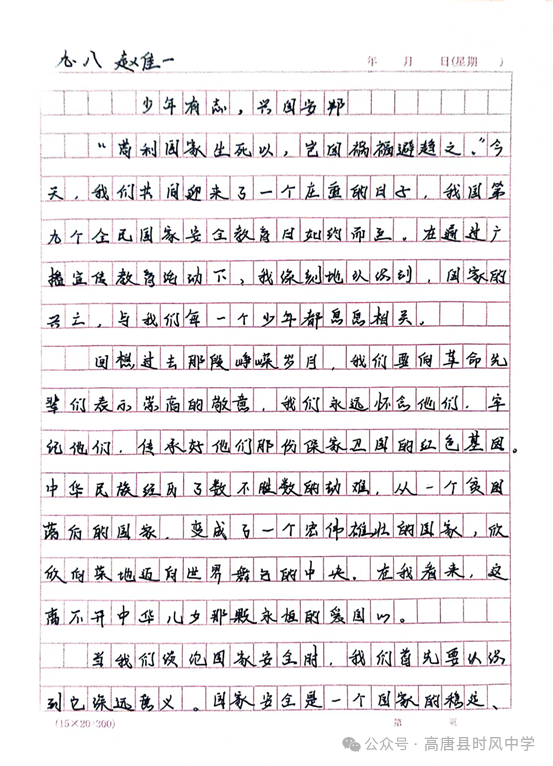 九·八 赵佳一
年 月 日(星期 )
少年有志，兴国安邦
“苟利国家生死以，岂因祸福避趋之。”今
天，我们共同迎来了一个庄重的日子，我国第
九个全民国家安全教育日如约而至。在通过广
播宣传教育活动下，我深刻地认识到，国家的
兴亡，与我们每一个少年都息息相关。
回想过去那段峥嵘岁月，我们要向革命先
辈们表示崇高的敬意，我们永远怀念他们，牢
记他们，传承好他们那份保家卫国的红色基因。
中华民族经历了数不胜数的劫难，从一个贫困
落后的国家，变成了一个宏伟雄壮的国家，欣
欣向荣地迈向世界舞台的中央。在我看来，这
离不开中华儿女那颗永恒的爱国心。
当我们谈论国家安全时，我们首先要认识
到它深远意义。国家安全是一个国家的稳定、
(15×20=300)
第 页
公众号·高唐县时风中学